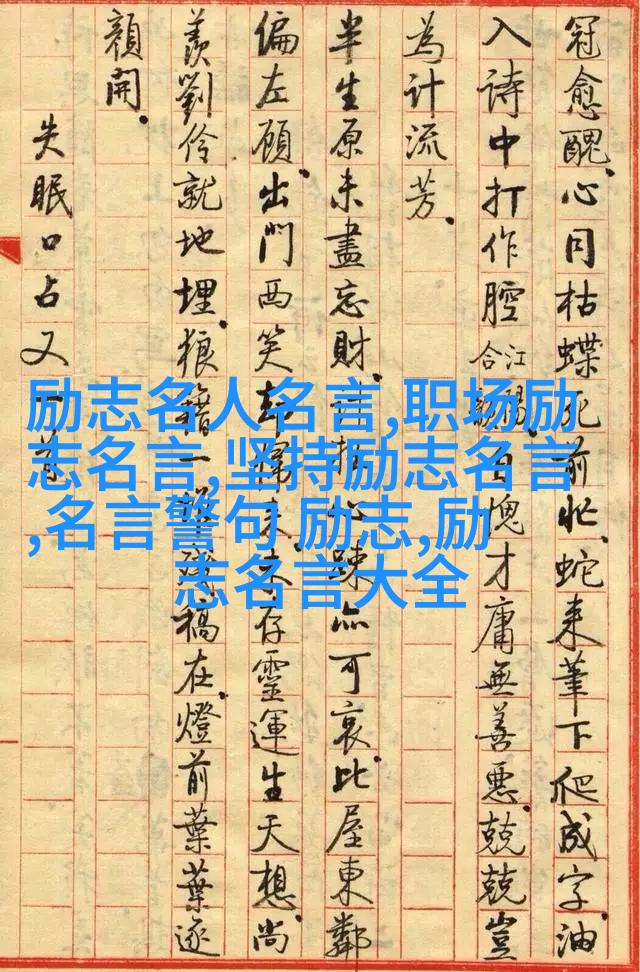 冠愈醜。心同枯蝶死前忙。蛇来筆下爬成字。油
入詩中打作腔 合江 愧才庸無善惡。兢兢豈
為計流芳。
半生原未盡忘財。疎亦可哀。比屋東鄰
偏左顧。出門西笑却存靈運生天想。尚
羨劉伶就地埋。狼籍一稿在。燈前葉葉逐
顏開。
失眠口占又
励志名人名言,职场励
志名言,坚持励志名言
,名言警句 励志,励
志名言大全